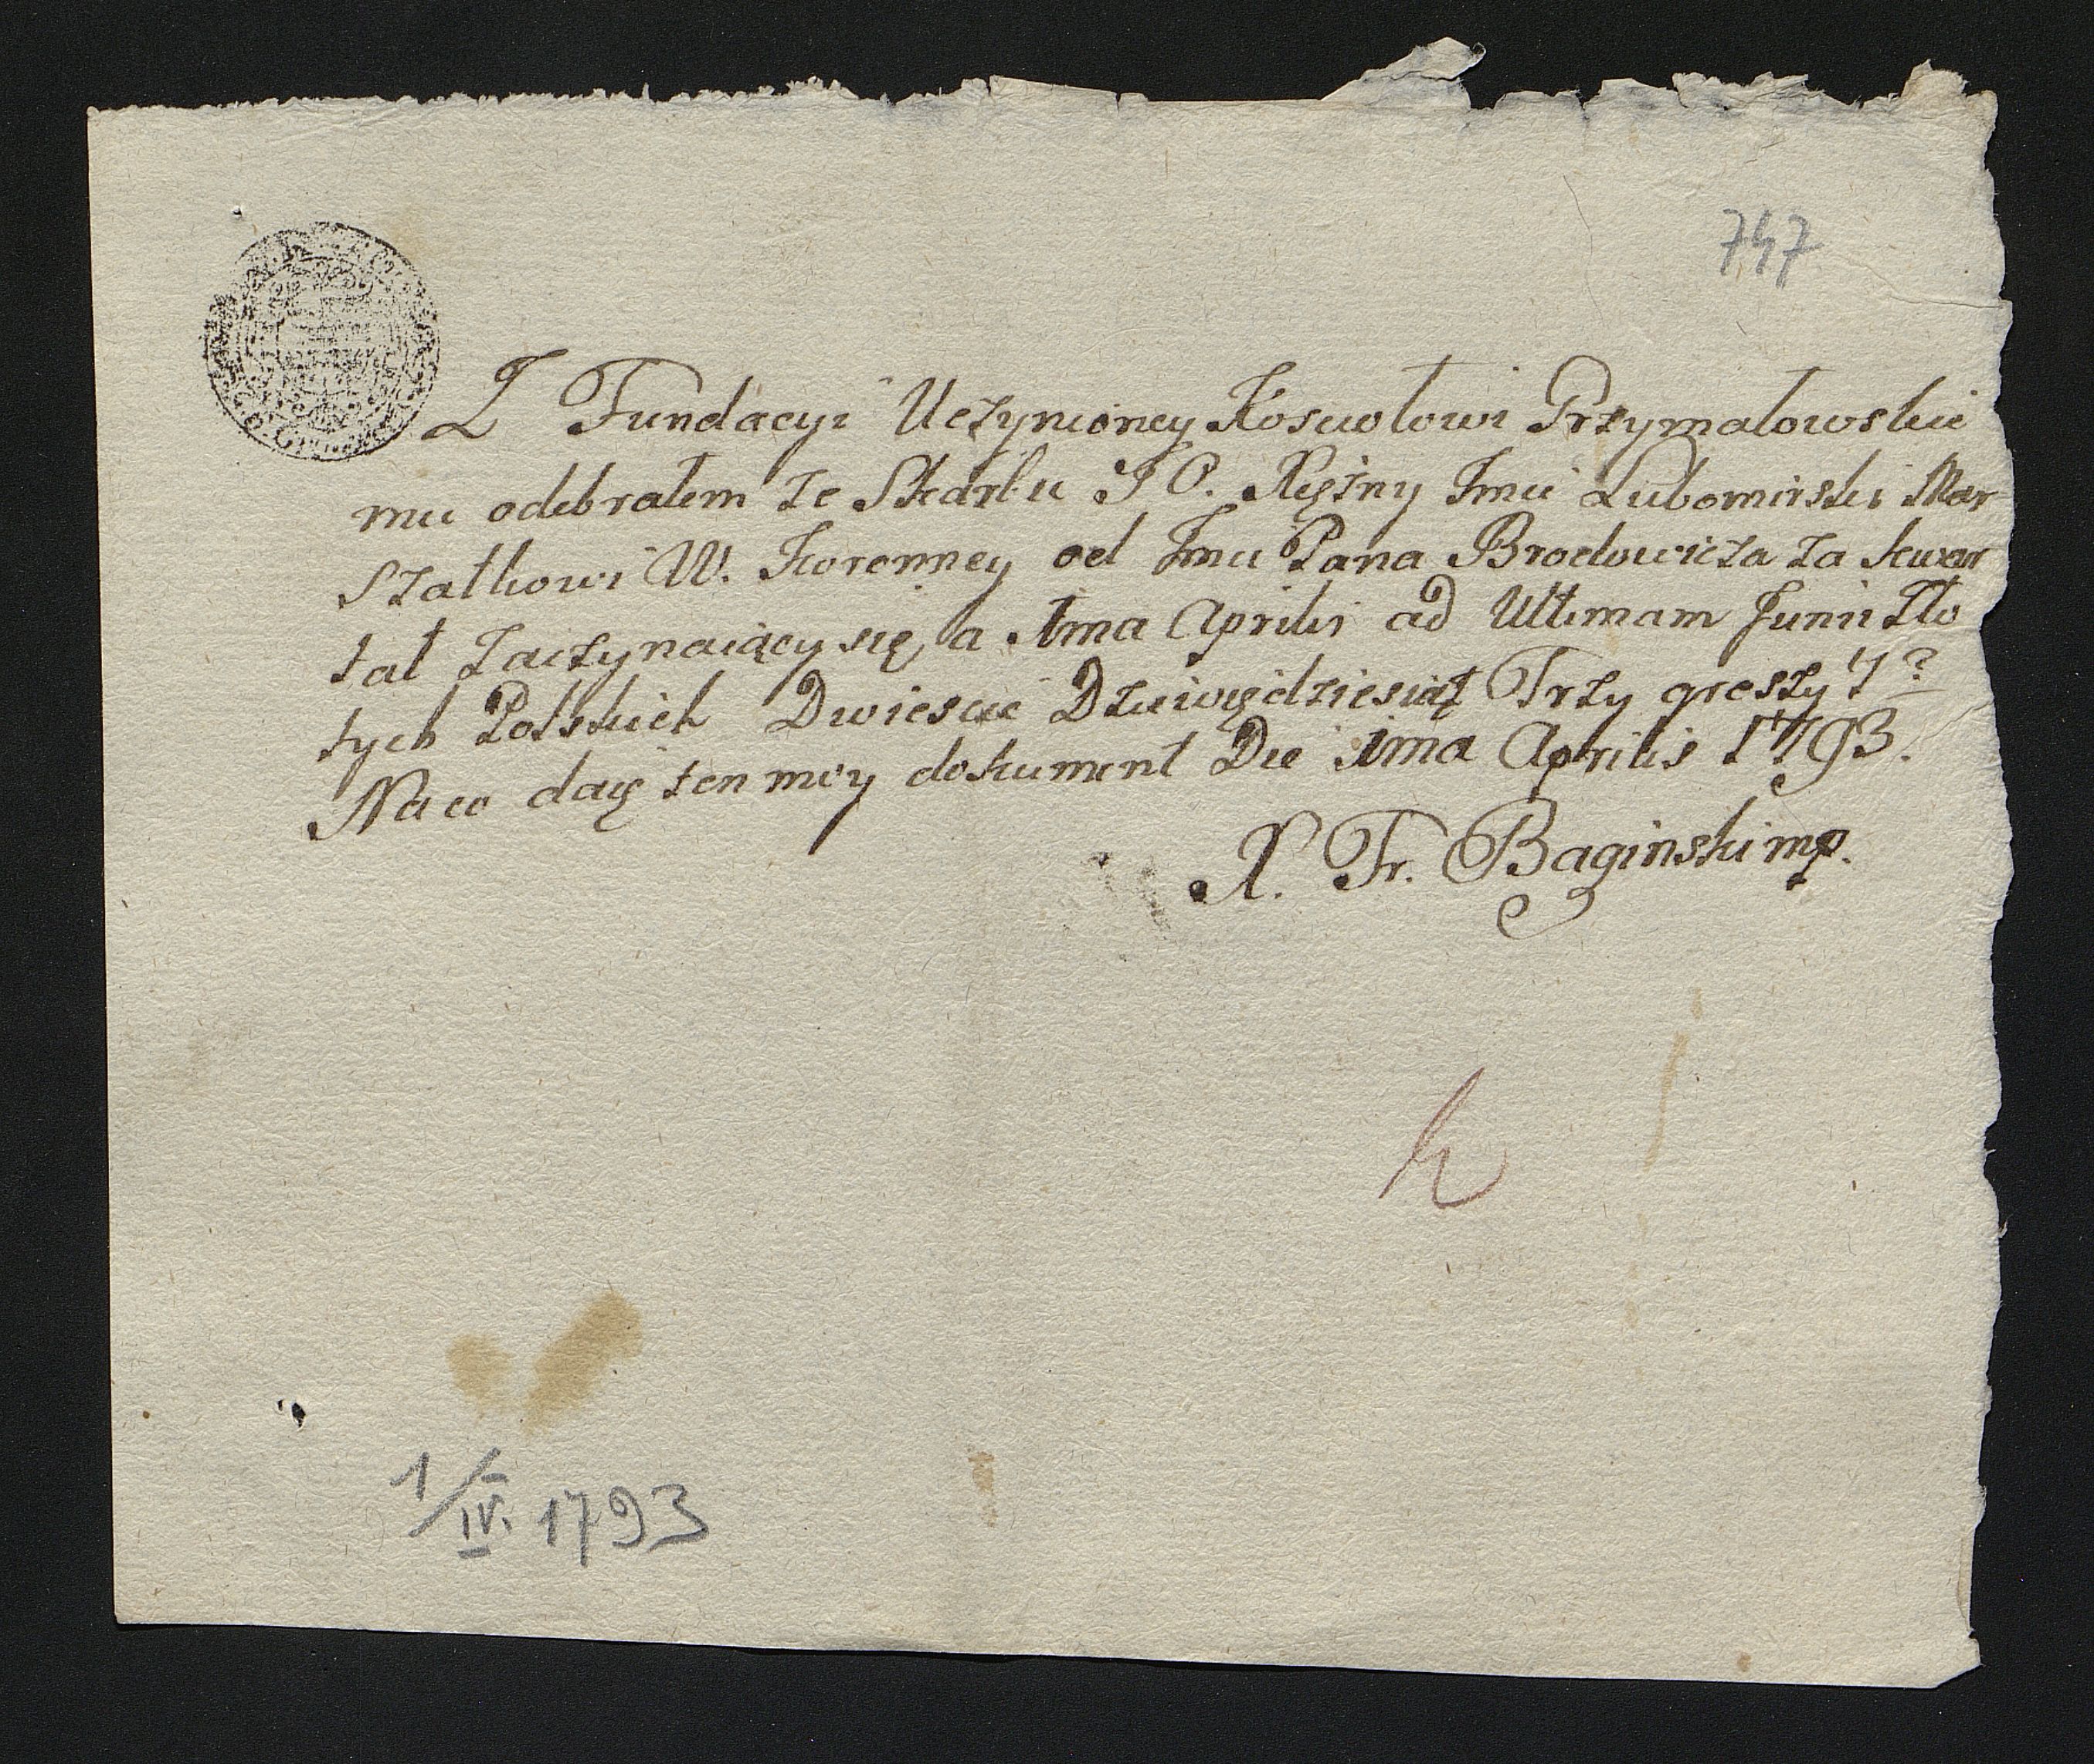 747
Z Fundacyi Uczynioney Kosciołowi Przymałowskie
mu odebrałem ze Skarbu J O. Xiężny Jmci Lubomirski Mar
szałkowi W. Koronney od Jmci Pana Brodowicza za kwar
tał zaczynaiący się a 1ma Aprilis ad Ultimam Junii Zło
tych Polskich Dwiescie Dziewięcdziesiąt Trzy groszy
Na co daię ten moy dokument Die 1ma Aprilis 1793.
X. Fr. Baginski mp.
1/IV. 1793